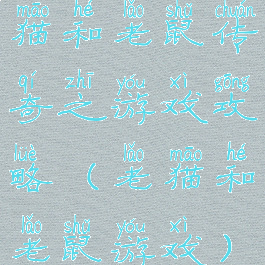 māo hé lǎo shǔ chuán
猫和老鼠传
qí zhī yóu xì gōng
奇之游戏攻
lüè lǎo māo hé
略（老猫和
lǎo shǔ yóu xì
老鼠游戏）